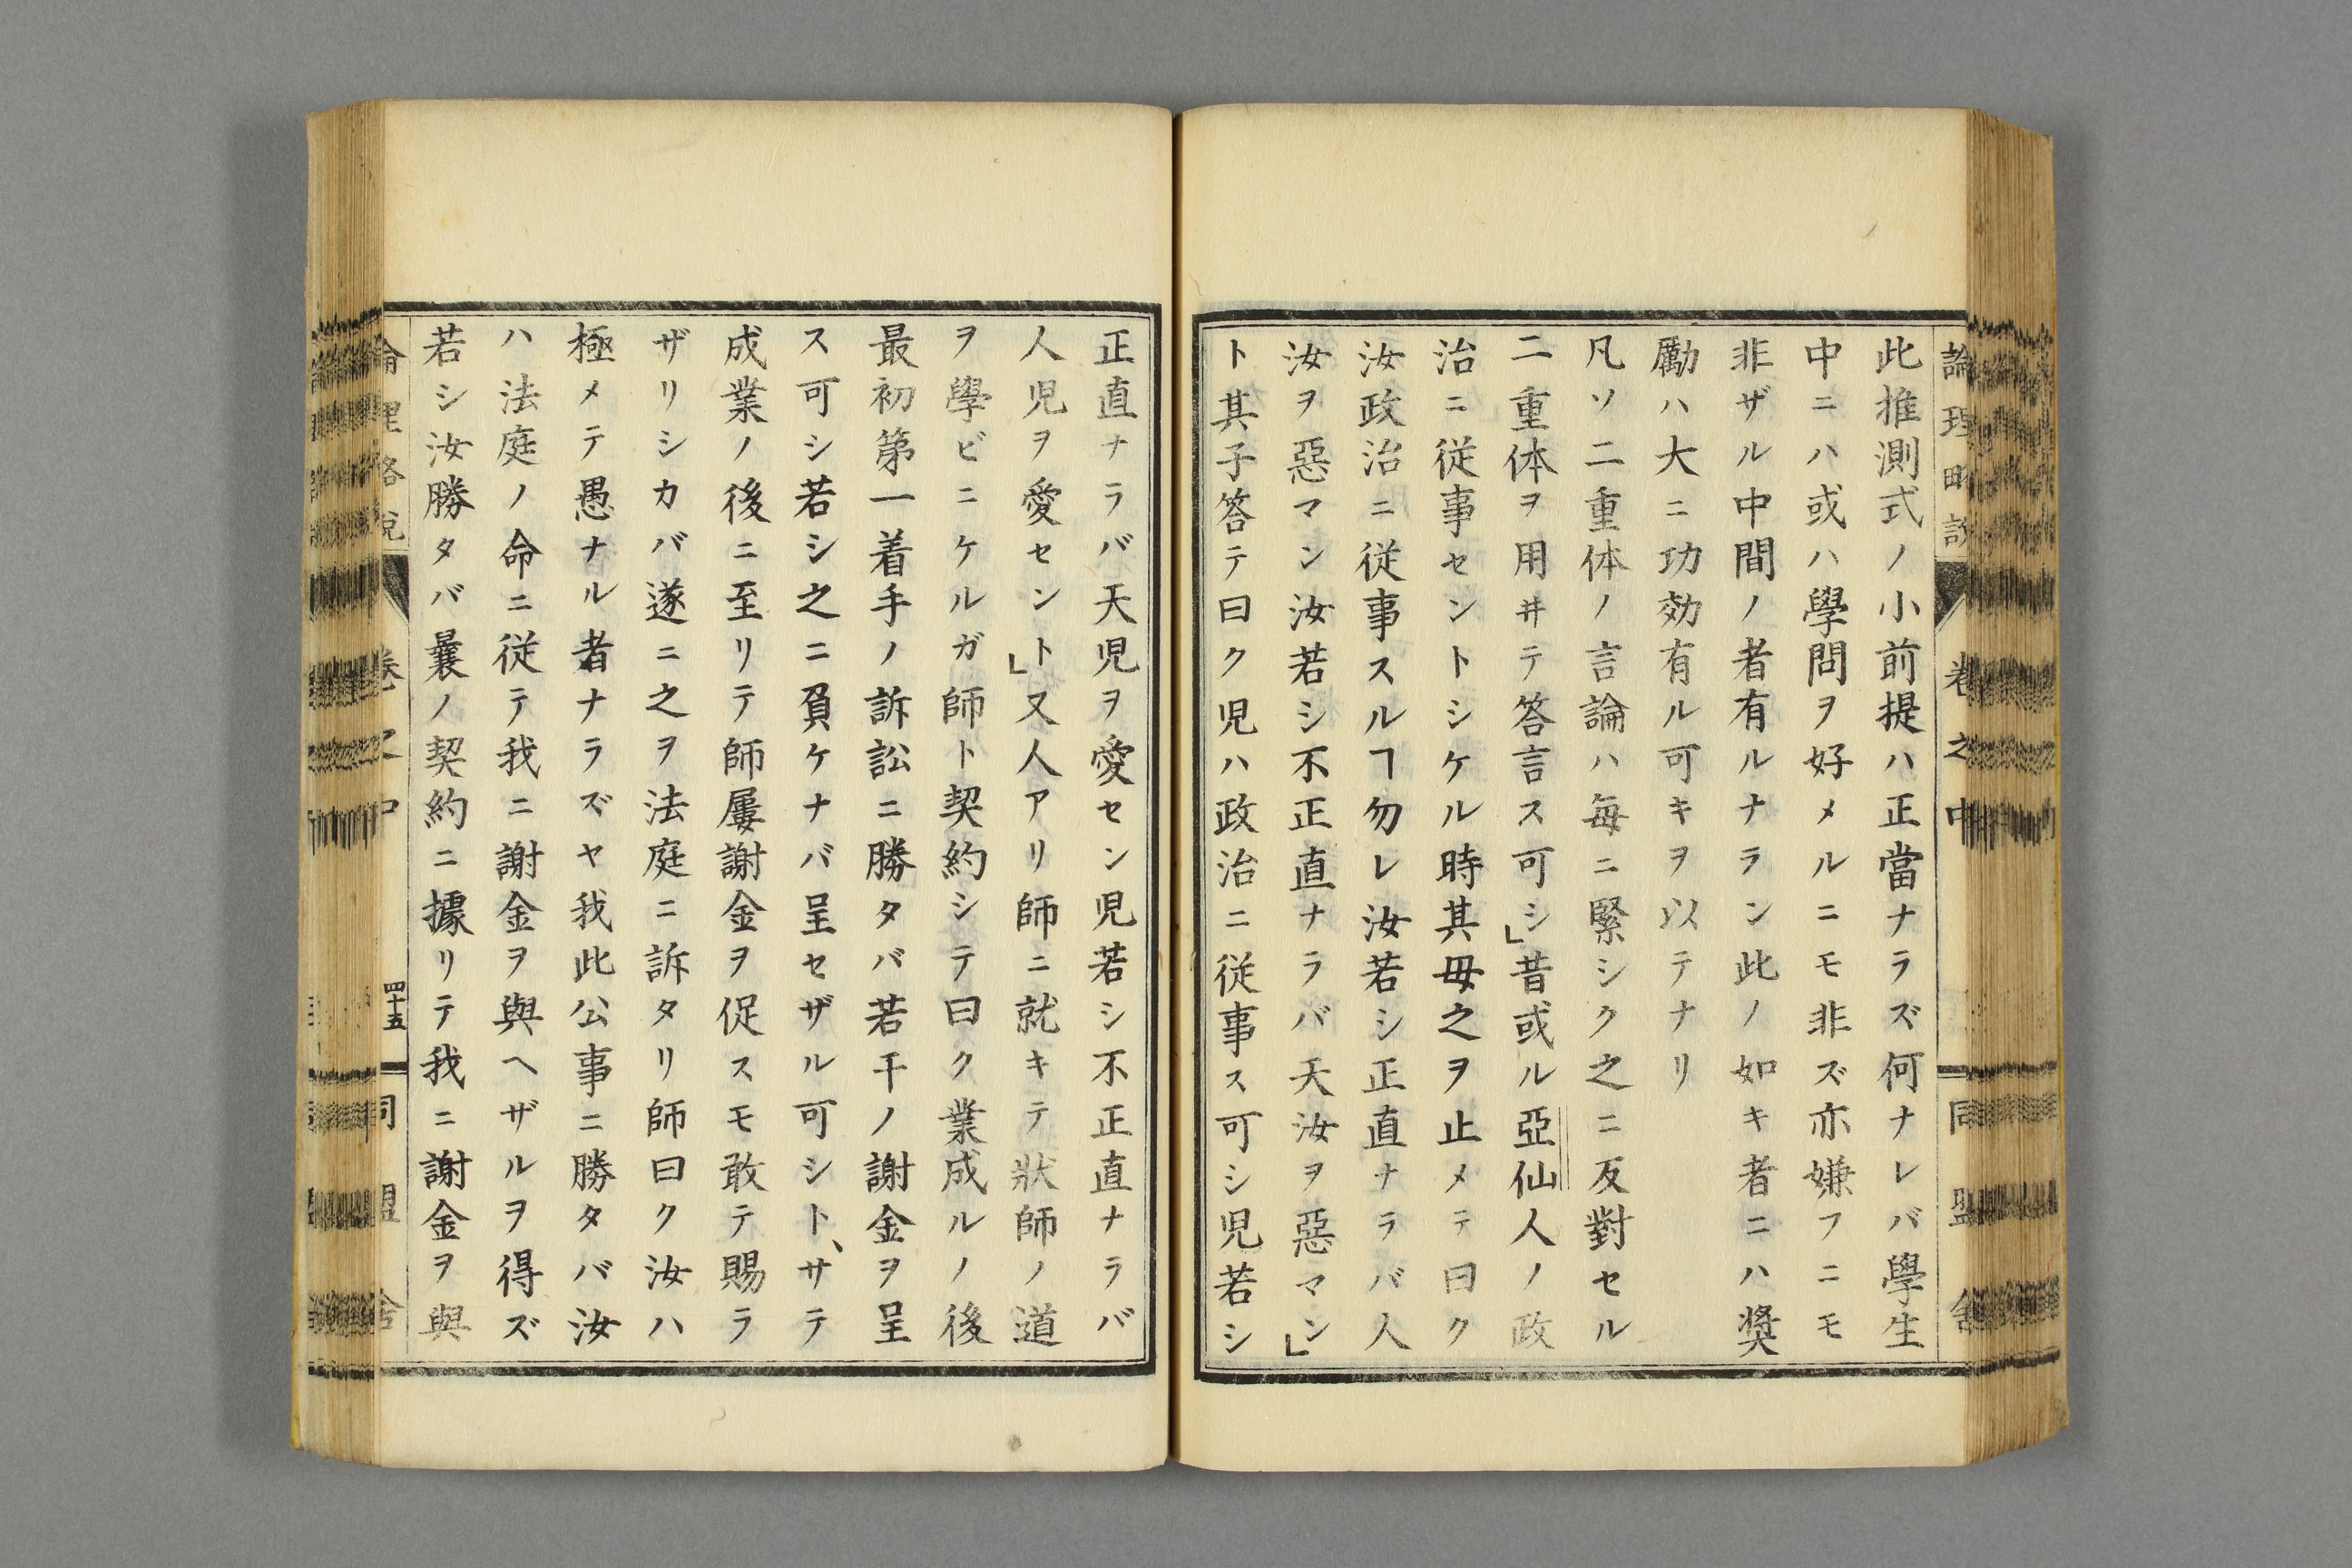 論理略説 卷之中 同盟舎
此推測式ノ小前提ハ正當ナラズ何ナレバ學生
中ニハ或ハ學問ヲ好メルニモ非ズ亦嫌フニモ
非ザル中間ノ者有ルナラン此ノ如キ者ニハ奬
勵ハ大ニ功効有ル可キヲ以テナリ
凡ソ二重体ノ言論ハ毎ニ緊シク之ニ反對セル
二重体ヲ用井テ答言ス可シ」昔或ル亞仙人ノ政
治ニ従事セントシケル時其母之ヲ止メテ曰ク
汝政治ニ従事スルヿ勿レ汝若シ正直ナラバ人
汝ヲ惡マン汝若シ不正直ナラバ天汝ヲ惡マン」
ト其子答テ曰ク児ハ政治ニ従事ス可シ児若シ
正直ナラバ天児ヲ愛セン児若シ不正直ナラバ
人児ヲ愛セント」又人アリ師ニ就キテ狀師ノ道
ヲ學ビニケルガ師ト契約シテ曰ク業成ルノ後
最初第一着手ノ訴訟ニ勝タバ若干ノ謝金ヲ呈
ス可シ若シ之ニ負ケナバ呈セザル可シト、サテ
成業ノ後ニ至リテ師屢謝金ヲ促スモ敢テ賜ラ
ザリシカバ遂ニ之ヲ法庭ニ訴タリ師曰ク汝ハ
極メテ愚ナル者ナラズヤ我此公事ニ勝タバ汝
ハ法庭ノ命ニ従テ我ニ謝金ヲ與ヘザルヲ得ズ
若シ汝勝タバ曩ノ契約ニ據リテ我ニ謝金ヲ與
論理略説 卷之中 四十五 同盟舎